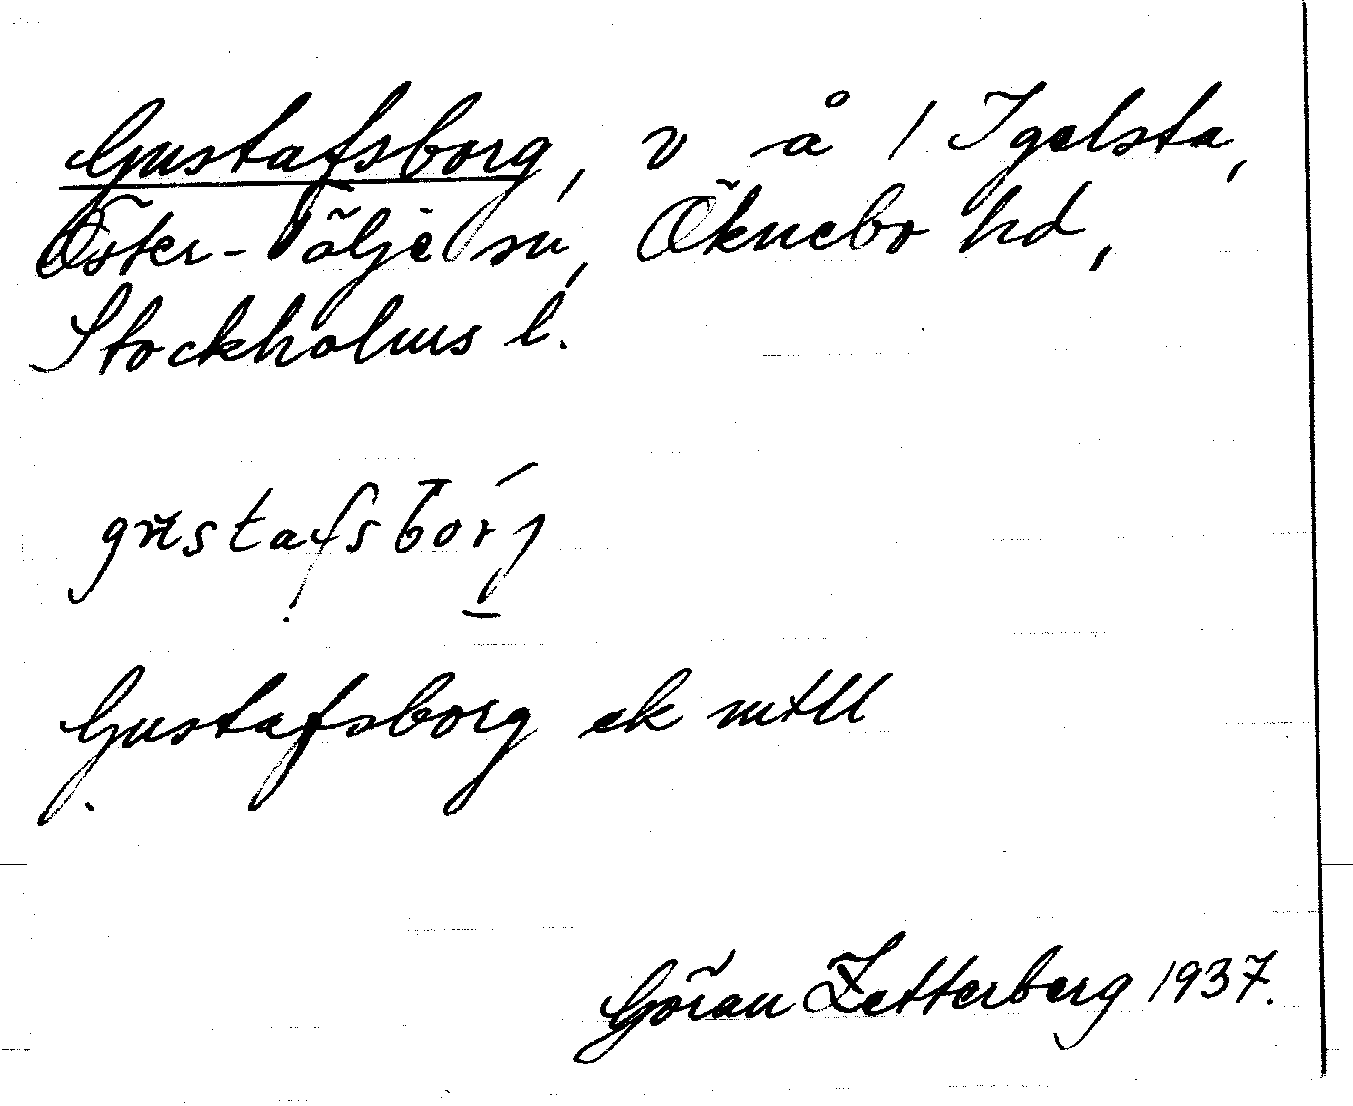 Gustafsborg, v å / Igelsta,
Öster-Tälje sn, Öknebo hd,
Stockholms l.
gustafsborj
Gustafsborg ek mtll
Göran Zetterberg 1937.